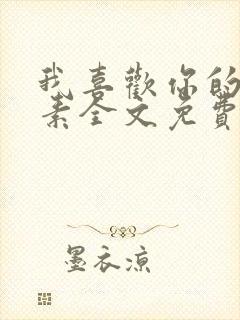 我喜歡你的
素全文免費
墨衣涼